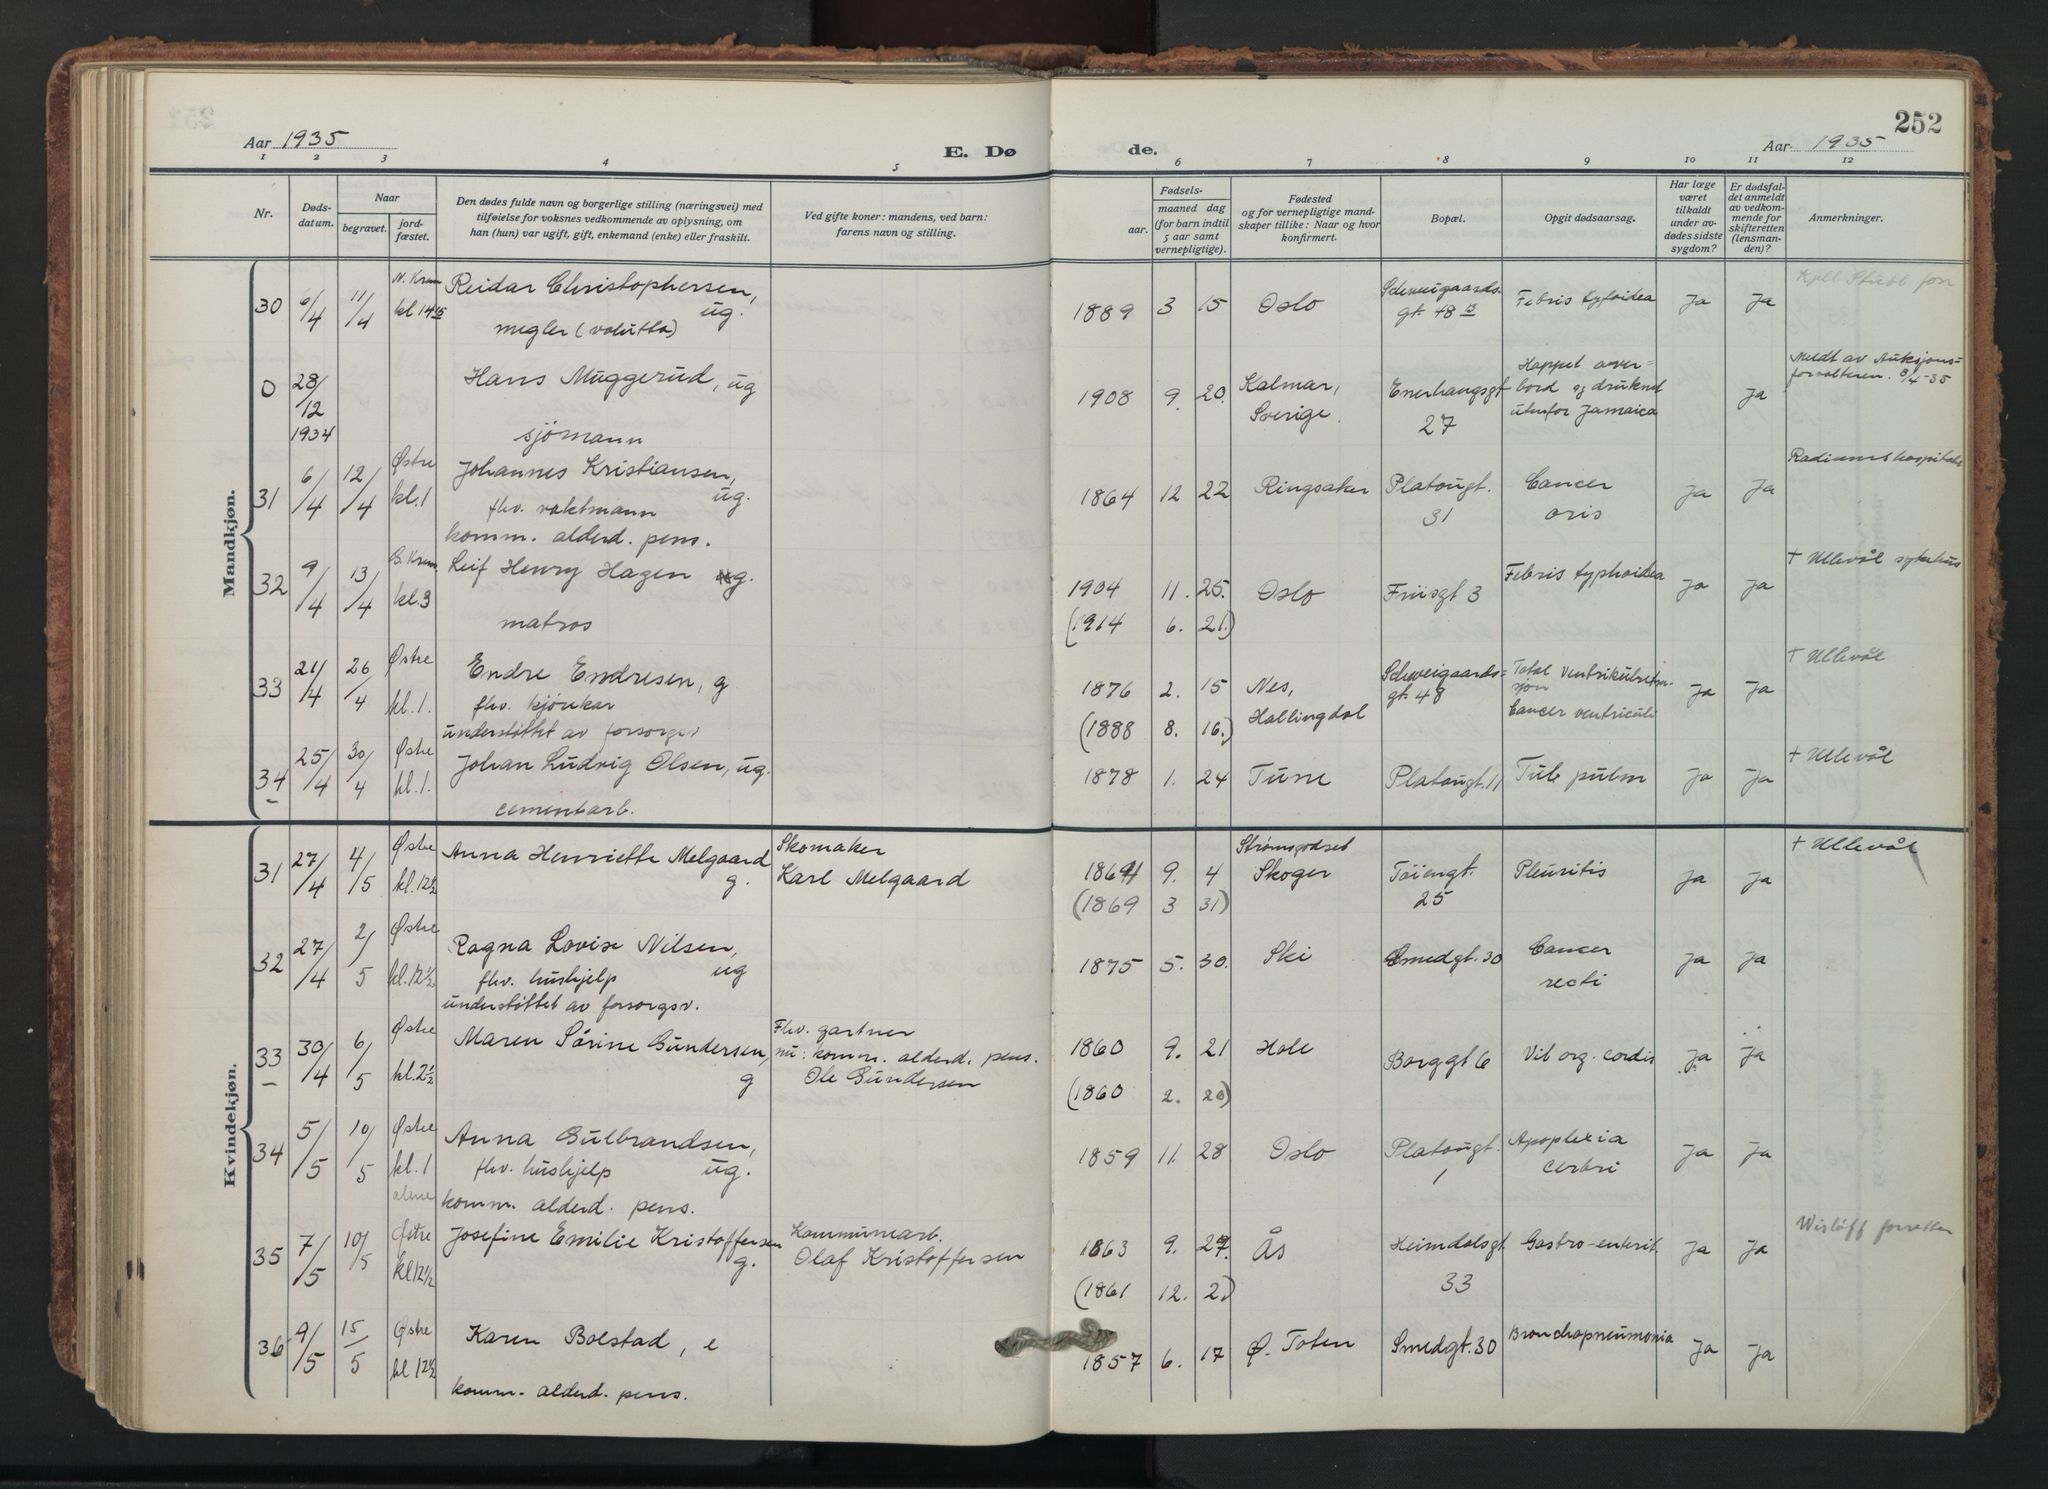 252
Aar 1935
E. Døde.
Aar 1935
1 2 3 4 5 6 7 8 9 10 11 12
Nr.
Døds-
datum.
Naar
begravet.
jord-
fæstet.
Den dødes fulde navn og borgerlige stilling (næringsvei) med
tilføielse for voksnes vedkommende av oplysning, om
han (hun) var ugift, gift, enkemand (enke) eller fraskilt.
Ved gifte koner: mandens, ved barn:
farens navn og stilling.
Fødsels-
aar.
maaned dag
(for barn indtil
5 aar samt
vernepligtige).
Fødested
og for vernepligtige mand-
skaper tillike: Naar og hvor
konfirmert.
Bopæl.
Opgit dødsaarsag.
Har læge
været
tilkaldt
under av-
dødes sidste
sygdom?
Er dødsfal-
det anmeldt
av vedkom-
mende for
skifteretten
(lensman-
den)?
Anmerkninger.
Mandkjøn.
30 6/4 11/4 N. Krem kl 14 15 Reidar Christophersen, ug.
megler (valutta)
1889 3 15 Oslo Schweigaards-
gt. 48 B Febris tyfoidea Ja Ja Kjell Stubb forr
0 28/12 1934 Hans Muggerud, ug
sjömann
1908 9. 20. Kalmar,
Sverige. Enerhaugsgt
27 Hoppet over-
bord og druknet
utenfor Jamaica Ja Meldt av Auksjons-
forvalteren. 3/4-35
31 6/4 12/4 Østre kl. 1 Johannes Kristiansen, ug.
fhv. vaktmann
komm. alderd. pens.
1864 12 22 Ringsaker Platougt.
31 Cancer
oris Ja Ja Radiumshospitalet
32 9/4 13/4 G. Krem. kl. 3 Leif Henry Hagen ug.
matros
1904 11. 25. Oslo Friisgt 3 Febris typhoidea Ja Ja + Ullevål sykehus
(1914 6. 21.)
33 21/4 26/4 Østre kl. 1. Endre Endresen, g
fhv. kjörekar
understöttet av forsorgsv
1876 2. 15 Nes,
Hallingdal Schweigaards-
gt. 48 Total
Cancer ventriculi Ja Ja + Ullevål
(1888 8. 16.)
34 25/4 30/4 Østre kl. 1. Johan Ludvig Olsen, ug.
cementarb.
1878 1. 24 Tune Platougt. 11 Tub pulm Ja Ja + Ullevål
Kvindekjøn.
31 27/4 4/5 Østre kl. 12½ Anna Henriette Melgaard g. Skomaker
Karl Melgaard
1864 9. 4 Strømsgodset
Skoger Töiengt.
25 Pleuritis Ja Ja + Ullevål
(1869 3 31)
32 27/4 2/5 Østre kl. 12½ Ragna Lovise Nilsen, ug
fhv. hushjelp
understöttet av forsorgsv.
1875 5. 30. Ski Smedgt. 30 Cancer
recti Ja Ja
33 30/4 6/5 Østre kl. 2½ Maren Sörine Gundersen, g Fhv. gartner
nu: komm. alderd. pens.
Ole Gundersen
1860 9. 21 Hole Borggt 6 Vit org. cordis Ja Ja
(1860 2. 20)
34 5/5 10/5 Østre kl. 1 alene Anna Gulbrandsen, ug.
fhv. hushjelp
komm. alderd. pens.
1859 11. 28 Oslo Platougt.
1 Apoplexia
cerbri Ja Ja
35 7/5 10/5 Østre kl 12½ Josefine Emilie Kristoffersen g. Kommunearb.
Olaf Kristoffersen
1863 9. 27. Ås Heimdalsgt
33 Gastro-enterit. Ja Ja Wisløff forretter
(1861 12. 2.)
36 9/5 15/5 Østre kl 12½ Karen Bolstad, e
komm. alderd. pens.
1857 6. 17 Ø. Toten Smedgt. 30 Bronchopneumonia Ja Ja